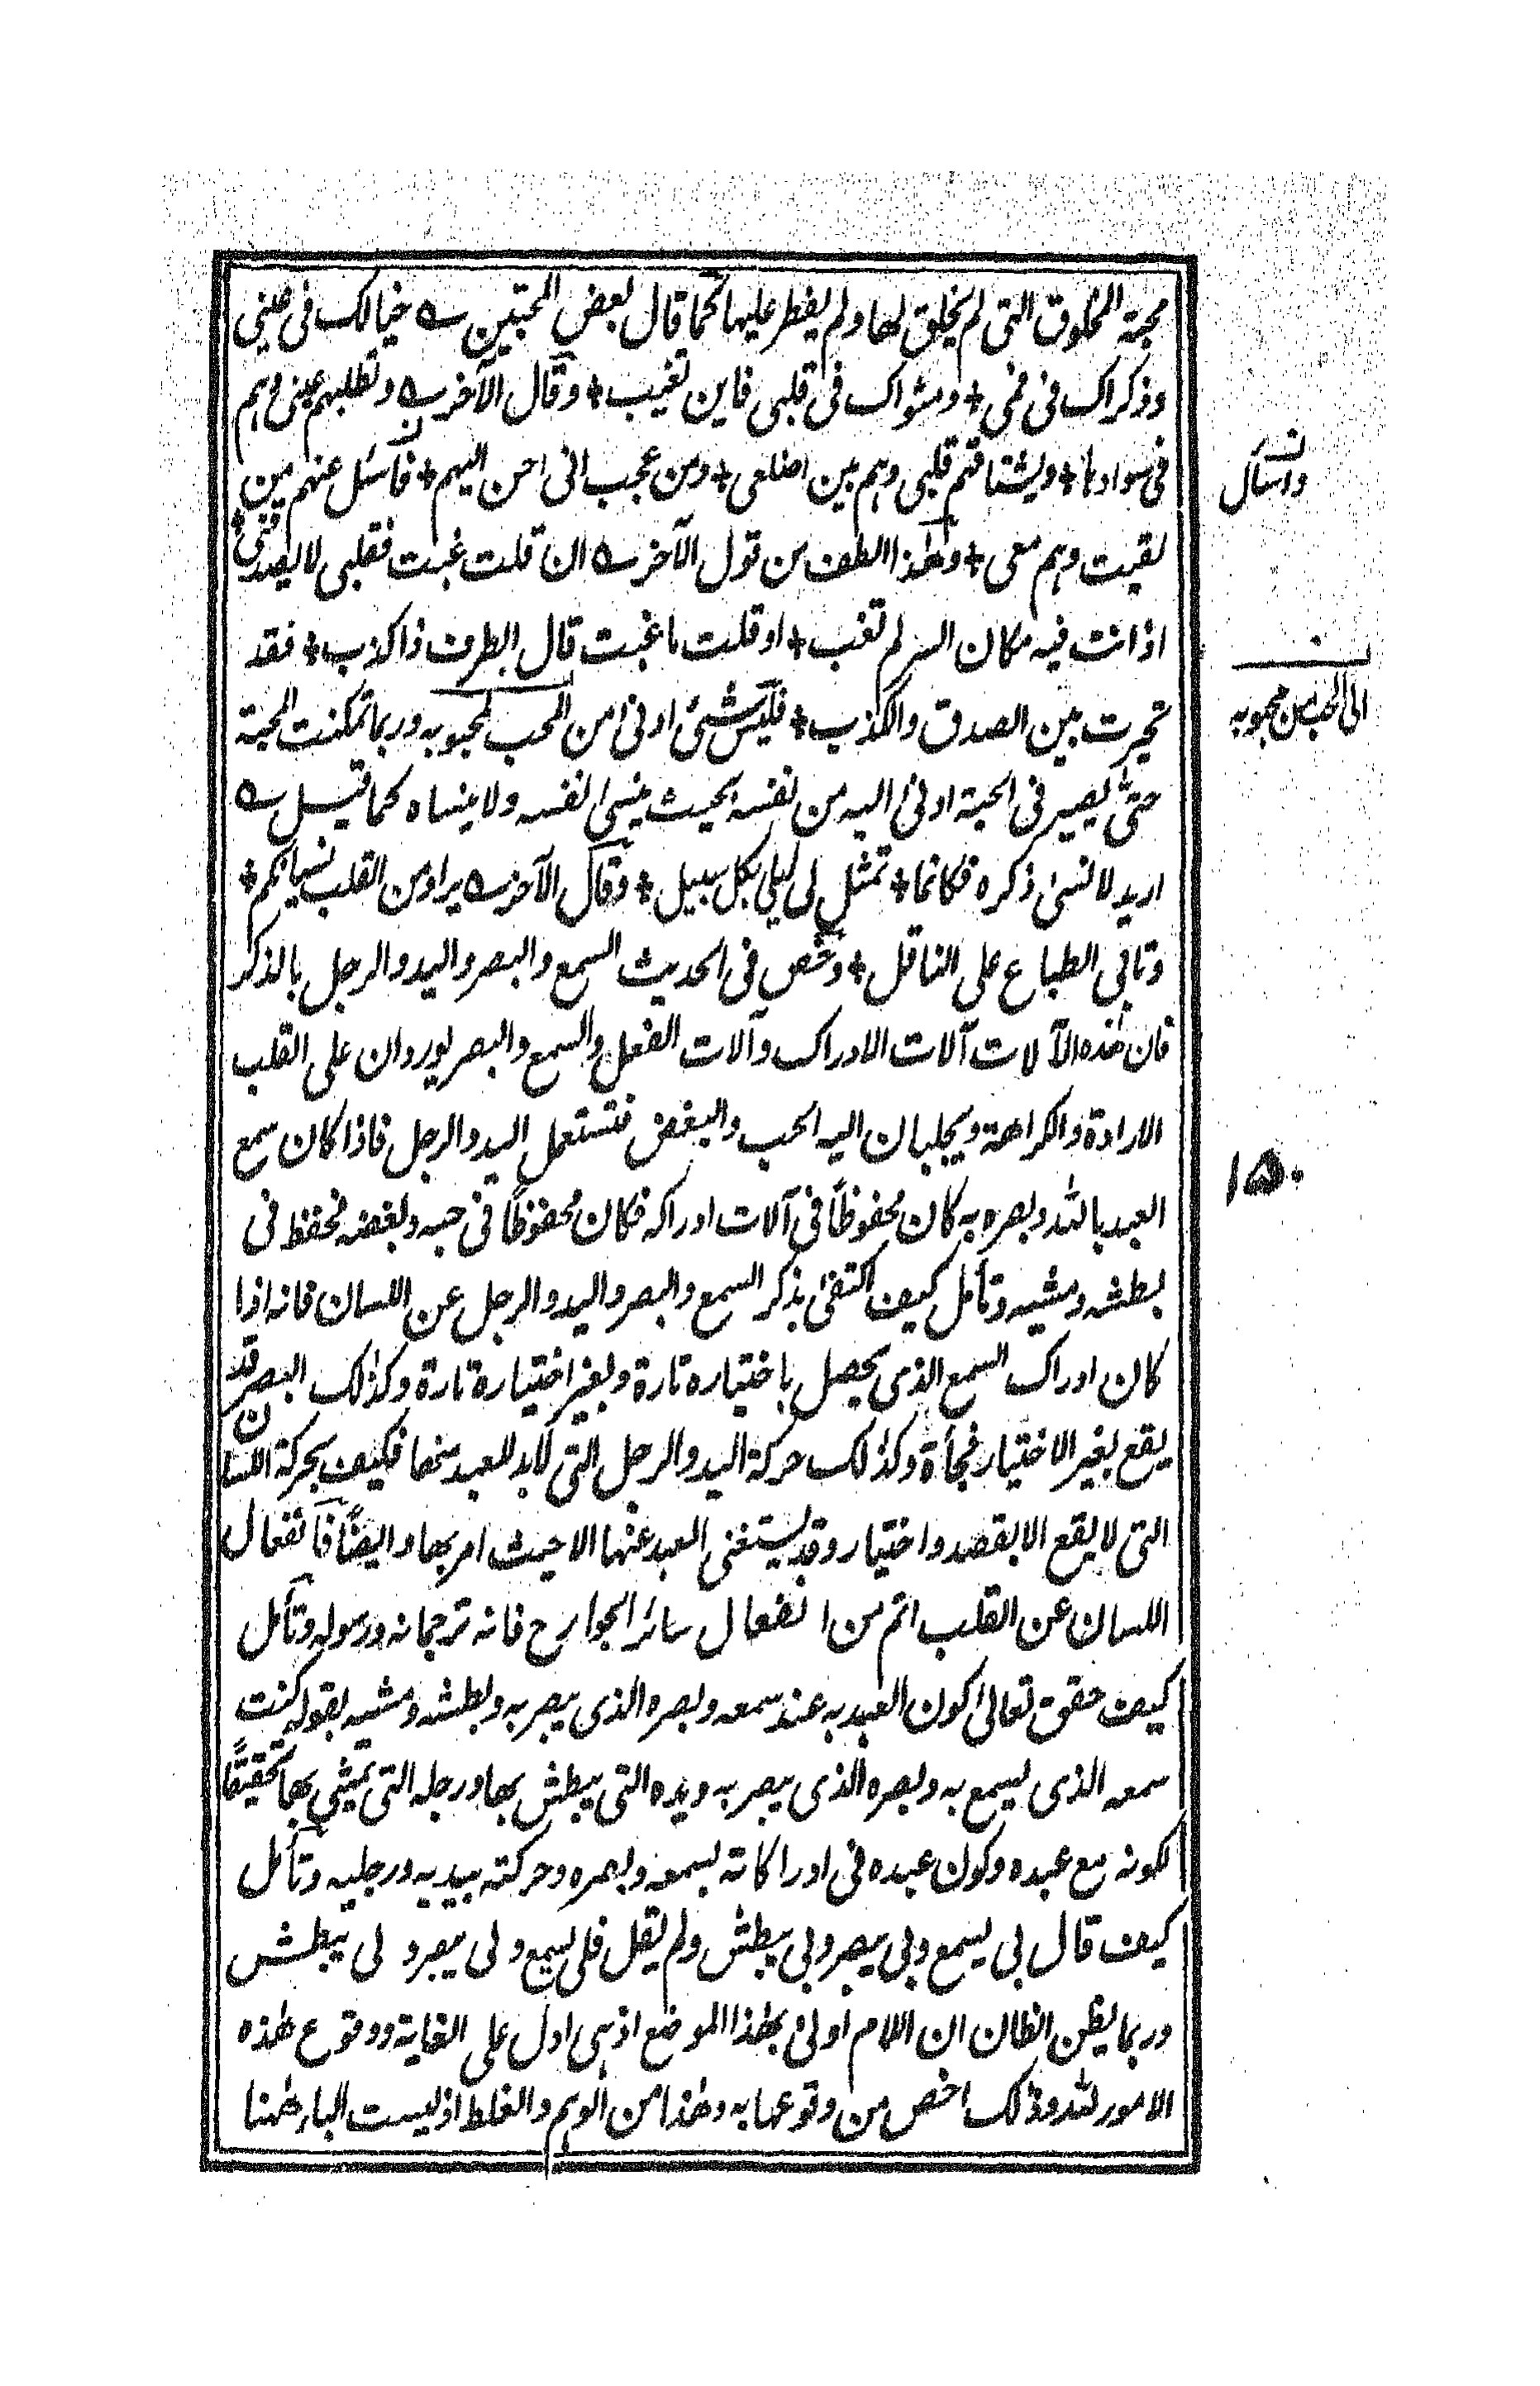 محبة المخلوق التي لم يخلق لها ولم يفطر عليها كما قال بعض المحبين ؎ خيالك في عيني
وذكراك في فمي + ومثواك في قلبي فاين تغيب + وقال الآخر ؎ وتطلبهم عيني وهم
في سوادها + ويشتاقهم قلبي وهم بين اضلعي + ومن عجب اني احن اليهم + فاسئل عنهم من
لقيت وهم معي + وهذا الطف من قول الآخر ؎ ان قلت غبت فقلبي لا يصدقني +
اذ انت فيه مكان السر لم تغب + او قلت ما غبت قال الطرف ذا كذب + فقد
تحيرت بين الصدق والكذب + فليس شيئ ادنى من المحب لمحبوبه وربما تمكنت المحبة
حتى يصير في المحبة ادنى اليه من نفسه بحيث ينسى نفسه ولا ينساه كما قيل ؎
اريد لانسى ذكره فكانما + تمثل لي ليلى بكل سبيل + وقال الآخر ؎ يراد من القلب نسيانكم +
وتابى الطباع على الناقل + وخص في الحديث السمع والبصر واليد والرجل بالذكر
فان هذه الآلات آلات الادراك وآلات الفعل والسمع والبصر يوردان على القلب
الارادة والكراهة ويجلبان اليه الحب والبغض فتستعمل اليد والرجل فاذا كان سمع
العبد بالله وبصره به كان محفوظاً في آلات ادراكه فكان محفوظاً في حبه وبغضه فحفظ في
بطشه ومشيه وتأمل كيف اكتفى بذكر السمع والبصر واليد والرجل عن اللسان فانه اذا
كان ادراك السمع الذي يحصل باختياره تارة وبغير اختياره تارة وكذلك البصر قد
يقع بغير الاختيار فجأة وكذلك حركة اليد والرجل التي لابد للعبد منها فكيف بحركة اللسان
التي لا يقع الا بقصد واختيار وقد يستغني العبد عنها الا حيث امر بها وايضًا فانفعال
اللسان عن القلب اتم من انفعال سائر الجوارح فانه ترجمانه ورسوله وتأمل
كيف حقق تعالى كون العبد به عند سمعه وبصره الذي يبصر به وبطشه ومشيه بقوله كنت
سمعه الذي يسمع به وبصره الذي يبصر به ويده التي يبطش بها ورجله التي يمشي بها تحقيقًا
لكونه مع عبده وكون عبده في ادراكاته بسمعه وبصره وحركته بيديه ورجليه وتأمل
كيف قال بي يسمع وبي يبصر وبي يبطش ولم يقل فلي يسمع ولي يبصر ولي يبطش
وربما يظن الظان ان اللام اولى بهذا الموضع اذ هي ادل على الغاية ووقوع هذه
الامور لله وذلك اخص من وقوعها به وهذا من الوهم والغلط اذ ليست الباء ههنا
ن
واسأل
ن
الى المحب من محبوبه
١٥٠